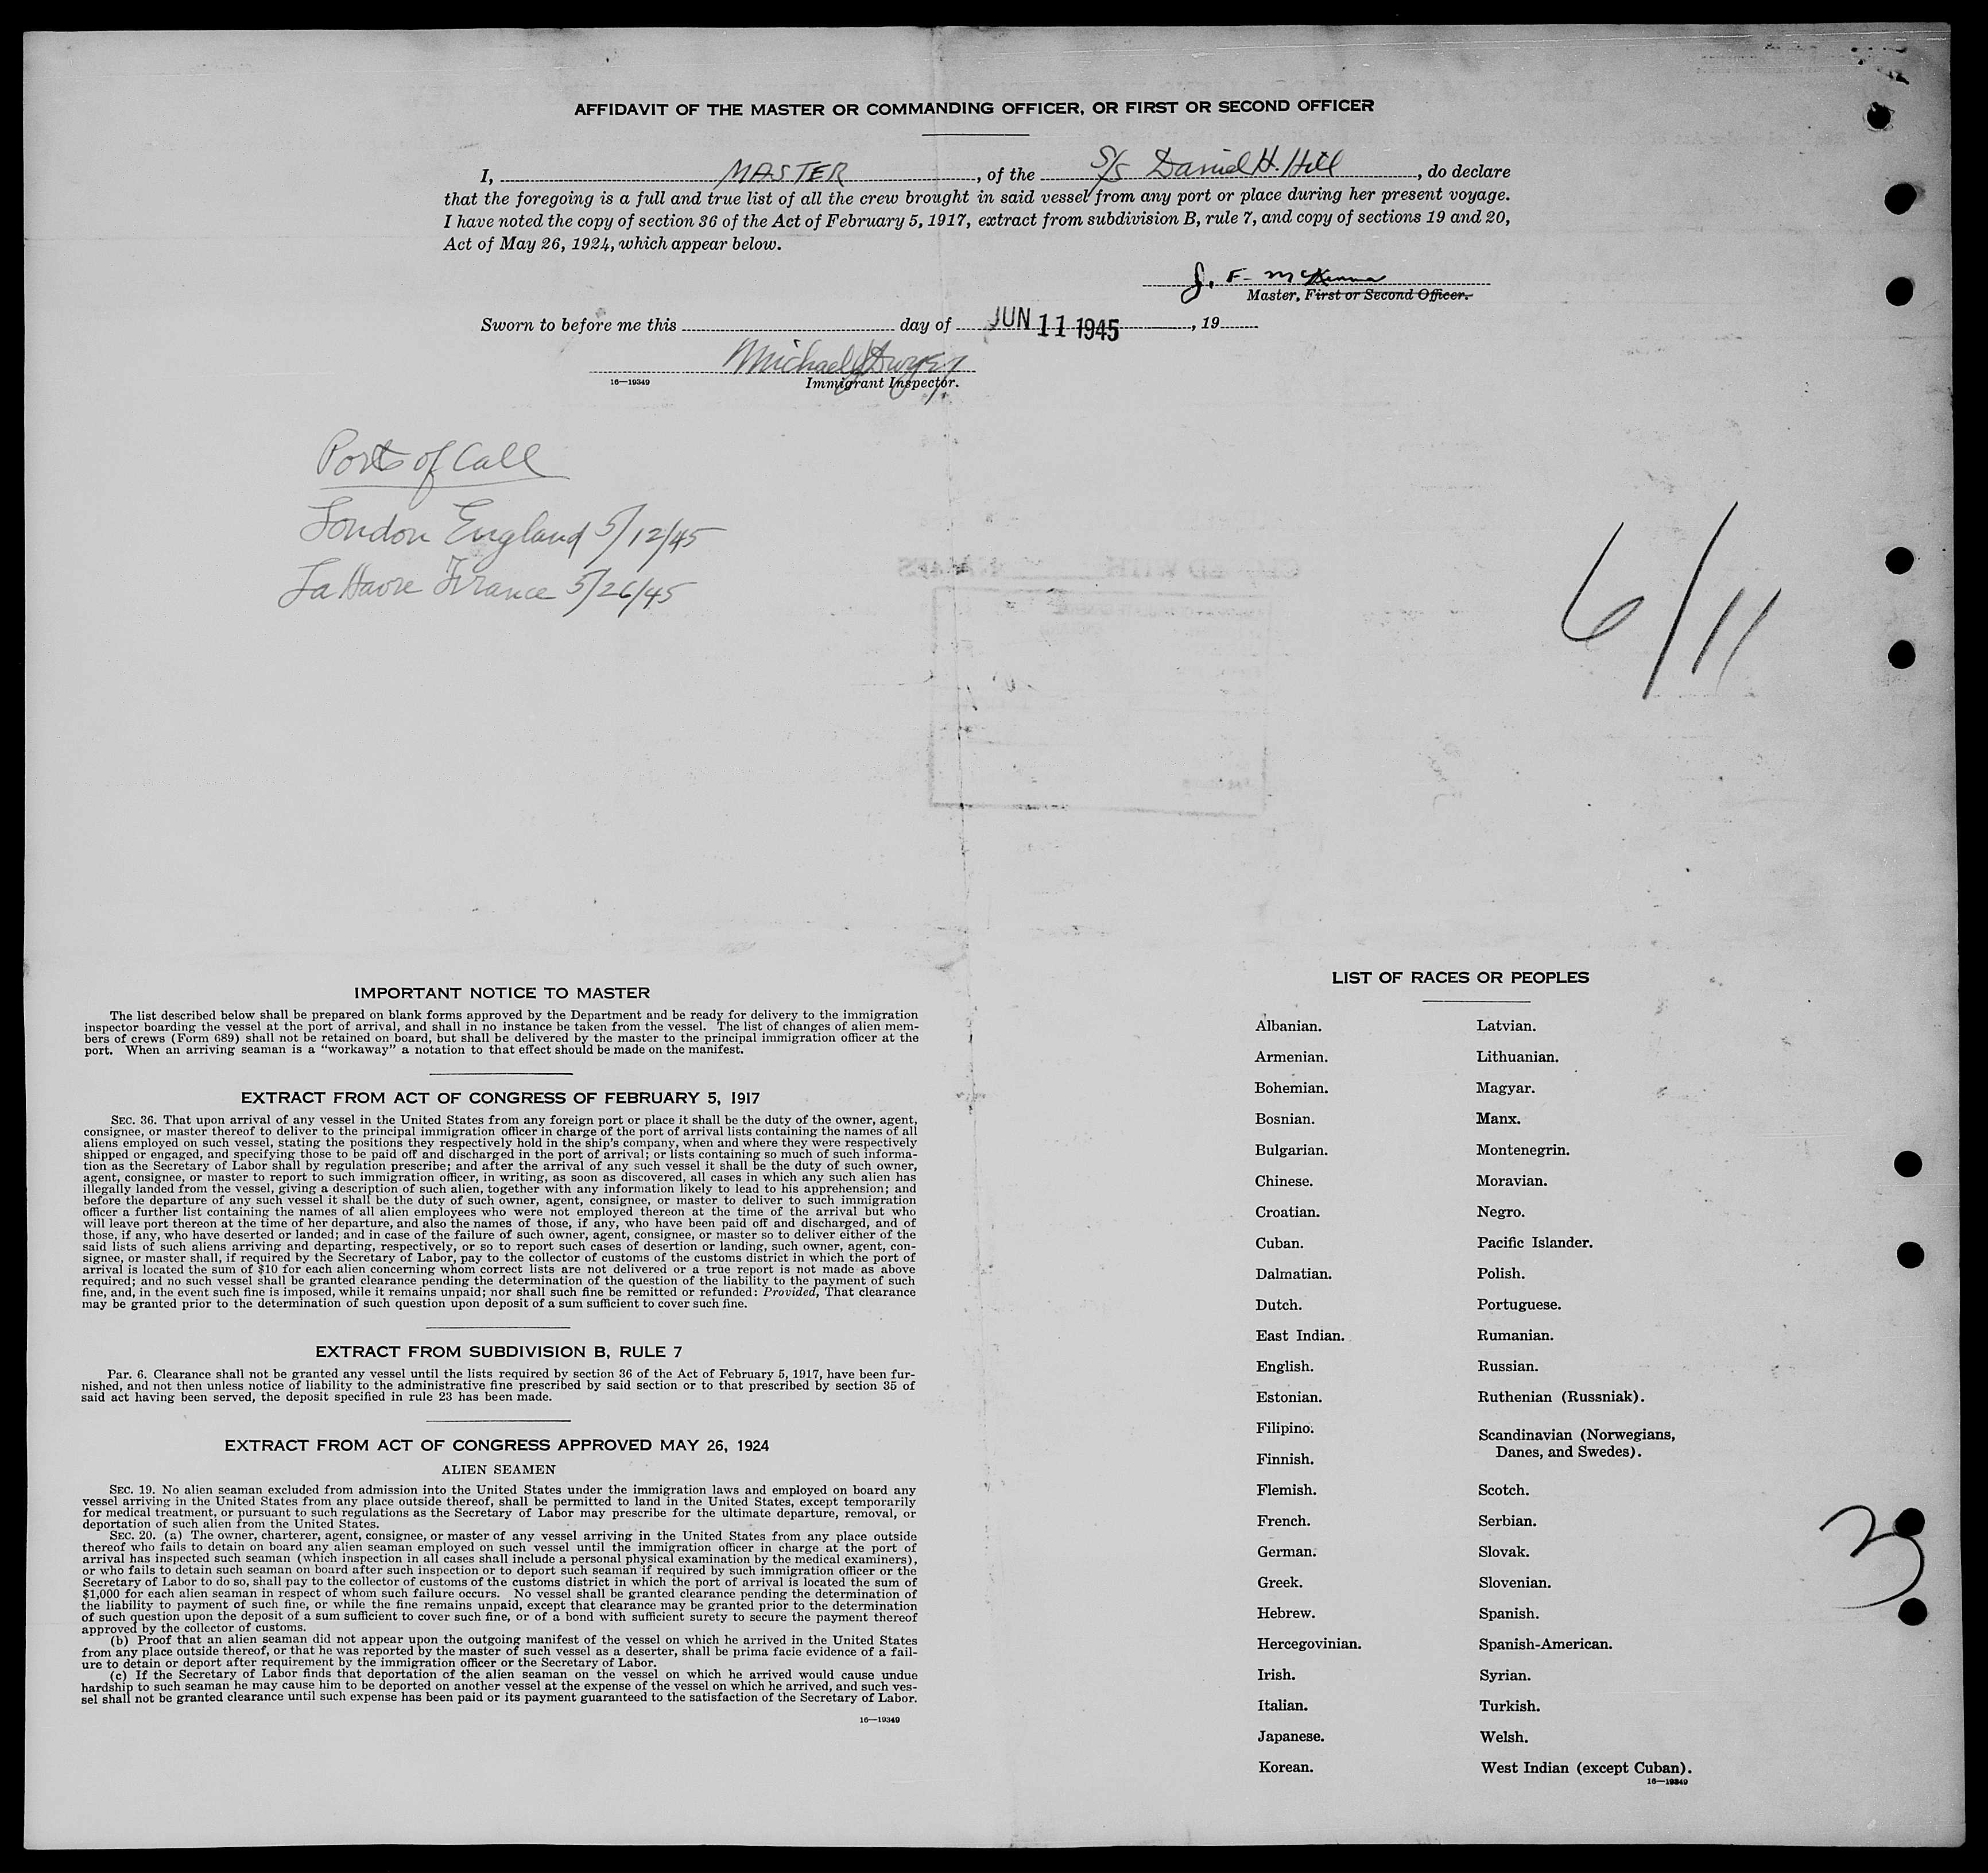 AFFIDAVIT OF THE MASTER OR COMMANDING OFFICER, OR FIRST OR SECOND OFFICER
I, MASTER, of the S/S Daniel H. Hill, do declare
that the foregoing is a full and true list of all the crew brought in said vessel from any port or place during her present voyage.
I have noted the copy of section 36 of the Act of February 5, 1917, extract from subdivision B, rule 7, and copy of sections 19 and 20,
Act of May 26, 1924, which appear below.
J. F. McKenna
Master, First or Second Officer.
Sworn to before me this day of JUN 11 1945, 19
Michael J Dwyer
16—19349 Immigrant Inspector.
Ports of Call
London England 5/12/45
La Havre France 5/26/45
6/11
IMPORTANT NOTICE TO MASTER
The list described below shall be prepared on blank forms approved by the Department and be ready for delivery to the immigration
inspector boarding the vessel at the port of arrival, and shall in no instance be taken from the vessel. The list of changes of alien mem-
bers of crews (Form 689) shall not be retained on board, but shall be delivered by the master to the principal immigration officer at the
port. When an arriving seaman is a "workaway" a notation to that effect should be made on the manifest.
EXTRACT FROM ACT OF CONGRESS OF FEBRUARY 5, 1917
SEC. 36. That upon arrival of any vessel in the United States from any foreign port or place it shall be the duty of the owner, agent,
consignee, or master thereof to deliver to the principal immigration officer in charge of the port of arrival lists containing the names of all
aliens employed on such vessel, stating the positions they respectively hold in the ship's company, when and where they were respectively
shipped or engaged, and specifying those to be paid off and discharged in the port of arrival; or lists containing so much of such informa-
tion as the Secretary of Labor shall by regulation prescribe; and after the arrival of any such vessel it shall be the duty of such owner,
agent, consignee, or master to report to such immigration officer, in writing, as soon as discovered, all cases in which any such alien has
illegally landed from the vessel, giving a description of such alien, together with any information likely to lead to his apprehension; and
before the departure of any such vessel it shall be the duty of such owner, agent, consignee, or master to deliver to such immigration
officer a further list containing the names of all alien employees who were not employed thereon at the time of the arrival but who
will leave port thereon at the time of her departure, and also the names of those, if any, who have been paid off and discharged, and of
those, if any, who have deserted or landed; and in case of the failure of such owner, agent, consignee, or master so to deliver either of the
said lists of such aliens arriving and departing, respectively, or so to report such cases of desertion or landing, such owner, agent, con-
signee, or master shall, if required by the Secretary of Labor, pay to the collector of customs of the customs district in which the port of
arrival is located the sum of $10 for each alien concerning whom correct lists are not delivered or a true report is not made as above
required; and no such vessel shall be granted clearance pending the determination of the question of the liability to the payment of such
fine, and, in the event such fine is imposed, while it remains unpaid; nor shall such fine be remitted or refunded: Provided, That clearance
may be granted prior to the determination of such question upon deposit of a sum sufficient to cover such fine.
EXTRACT FROM SUBDIVISION B, RULE 7
Par. 6. Clearance shall not be granted any vessel until the lists required by section 36 of the Act of February 5, 1917, have been fur-
nished, and not then unless notice of liability to the administrative fine prescribed by said section or to that prescribed by section 35 of
said act having been served, the deposit specified in rule 23 has been made.
EXTRACT FROM ACT OF CONGRESS APPROVED MAY 26, 1924
ALIEN SEAMEN
SEC. 19. No alien seaman excluded from admission into the United States under the immigration laws and employed on board any
vessel arriving in the United States from any place outside thereof, shall be permitted to land in the United States, except temporarily
for medical treatment, or pursuant to such regulations as the Secretary of Labor may prescribe for the ultimate departure, removal, or
deportation of such alien from the United States.
SEC. 20. (a) The owner, charterer, agent, consignee, or master of any vessel arriving in the United States from any place outside
thereof who fails to detain on board any alien seaman employed on such vessel until the immigration officer in charge at the port of
arrival has inspected such seaman (which inspection in all cases shall include a personal physical examination by the medical examiners),
or who fails to detain such seaman on board after such inspection or to deport such seaman if required by such immigration officer or the
Secretary of Labor to do so, shall pay to the collector of customs of the customs district in which the port of arrival is located the sum of
$1,000 for each alien seaman in respect of whom such failure occurs. No vessel shall be granted clearance pending the determination of
the liability to payment of such fine, or while the fine remains unpaid, except that clearance may be granted prior to the determination
of such question upon the deposit of a sum sufficient to cover such fine, or of a bond with sufficient surety to secure the payment thereof
approved by the collector of customs.
(b) Proof that an alien seaman did not appear upon the outgoing manifest of the vessel on which he arrived in the United States
from any place outside thereof, or that he was reported by the master of such vessel as a deserter, shall be prima facie evidence of a fail-
ure to detain or deport after requirement by the immigration officer or the Secretary of Labor.
(c) If the Secretary of Labor finds that deportation of the alien seaman on the vessel on which he arrived would cause undue
hardship to such seaman he may cause him to be deported on another vessel at the expense of the vessel on which he arrived, and such ves-
sel shall not be granted clearance until such expense has been paid or its payment guaranteed to the satisfaction of the Secretary of Labor.
16—19349
LIST OF RACES OR PEOPLES
Albanian.
Armenian.
Bohemian.
Bosnian.
Bulgarian.
Chinese.
Croatian.
Cuban.
Dalmatian.
Dutch.
East Indian.
English.
Estonian.
Filipino.
Finnish.
Flemish.
French.
German.
Greek.
Hebrew.
Hercegovinian.
Irish.
Italian.
Japanese.
Korean.
Latvian.
Lithuanian.
Magyar.
Manx.
Montenegrin.
Moravian.
Negro.
Pacific Islander.
Polish.
Portuguese.
Rumanian.
Russian.
Ruthenian (Russniak).
Scandinavian (Norwegians,
Danes, and Swedes).
Scotch.
Serbian.
Slovak.
Slovenian.
Spanish.
Spanish-American.
Syrian.
Turkish.
Welsh.
West Indian (except Cuban).
16—19349
3